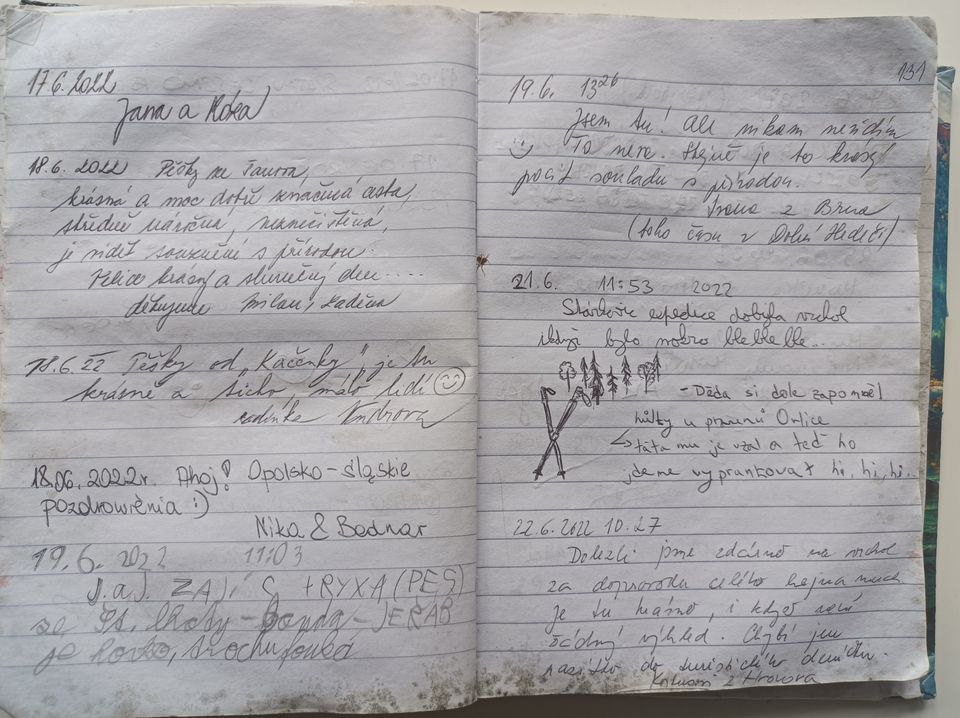 17.6.2022
Jana a
18.6.2022 Pěšky ze
krásná a moc dobře značená cesta,
středně náročná, neznečištěná,
je vidět souznění s přírodou.
Velice krásný a slunečný den.....
děkujeme Milan,
18.6.22 Pěšky od „Kačenky" je tu
krásně a ticho, málo lidí ☺
rodinka
18.06.2022r. Ahoj! Opolsko-śląskie
pozdrowienia :)
Nika & Bednar
19.6.2022 11:03
J. a J. + RYXA (PES)
ze St. - JEŘÁB
je horko, trochu fouká
131
19.6. 13²⁶
Jsem tu! Ale nikam nevidím
To neva. Stejně je to krásný
pocit souladu s přírodou.
z Brna
(toho času z Dolní Hedeč)
21.6. 11:53 2022
expedice dobyla vrchol
ikdyž bylo mokro ble ble ble...
- Děda si dole zapomněl
hůlky u pramenů Orlice
↳ táta mu je vzal a teď ho
jdeme vyprankovat hi, hi, hi..
22.6.2022 10.27
Dolezli jsme zdárně na vrchol
za doprovodu celého hejna much
je tu krásně, i když není
žádný výhled. Chybí jen
razítko do turistického deníčku.
z Hronova